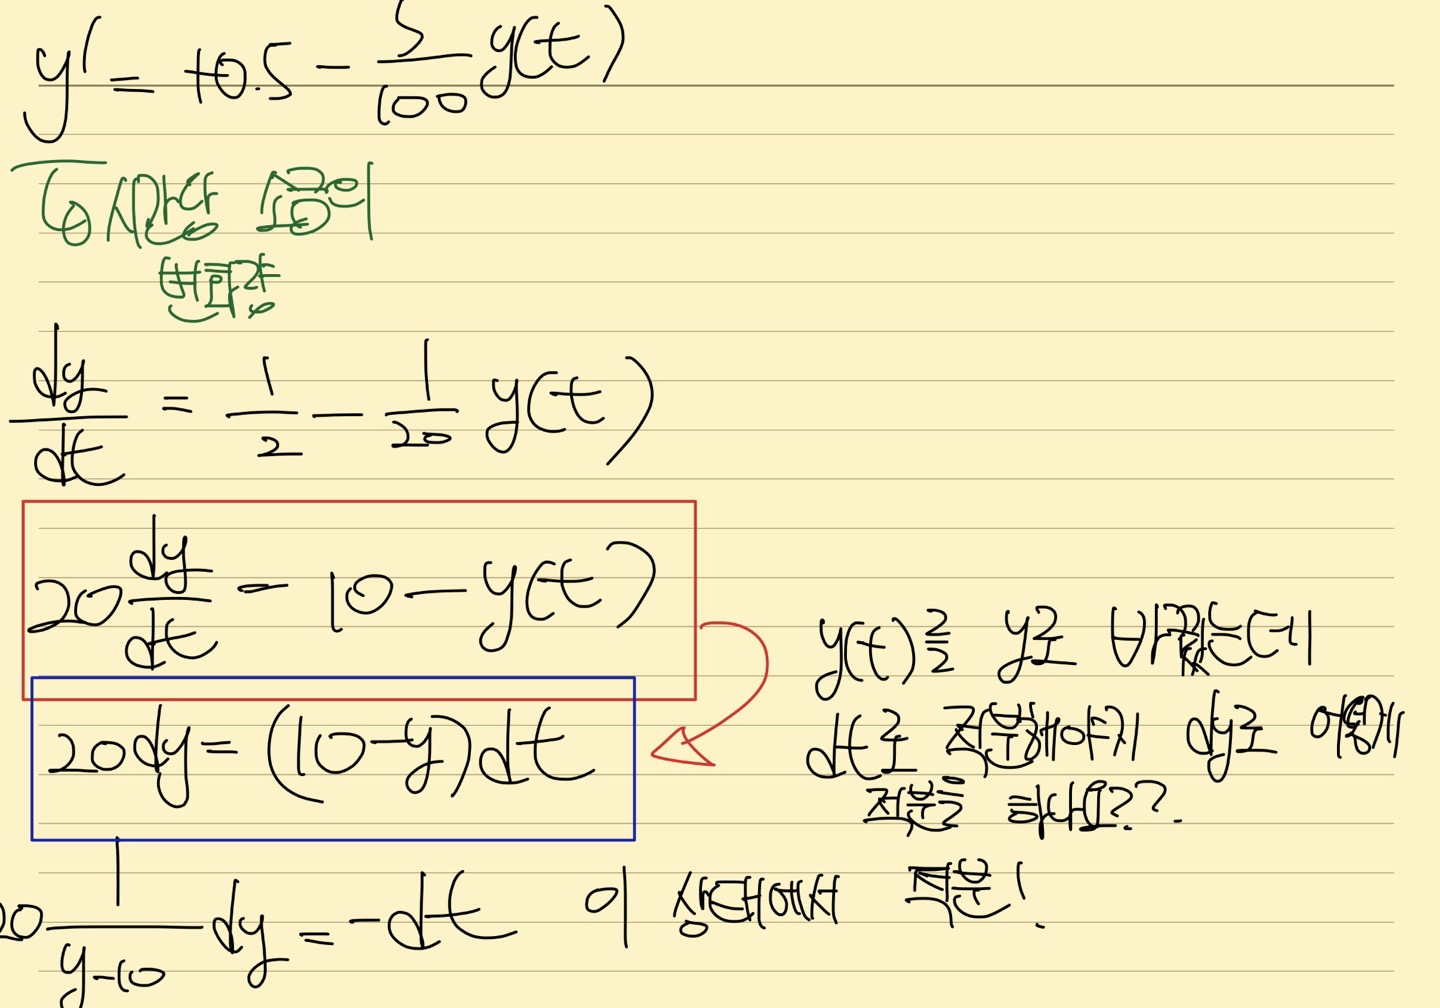 y' = +0.5 - 5/100 y(t)
순간당 소금의
변화량
dy/dt = 1/2 - 1/20 y(t)
20 dy/dt = 10 - y(t)
y(t)를 y로 바꿨는데
20dy = (10-y)dt
dt로 적분해야지 dy로 어떻게
적분을 하나요??.
20 1/(y-10) dy = -dt 이 상태에서 적분!